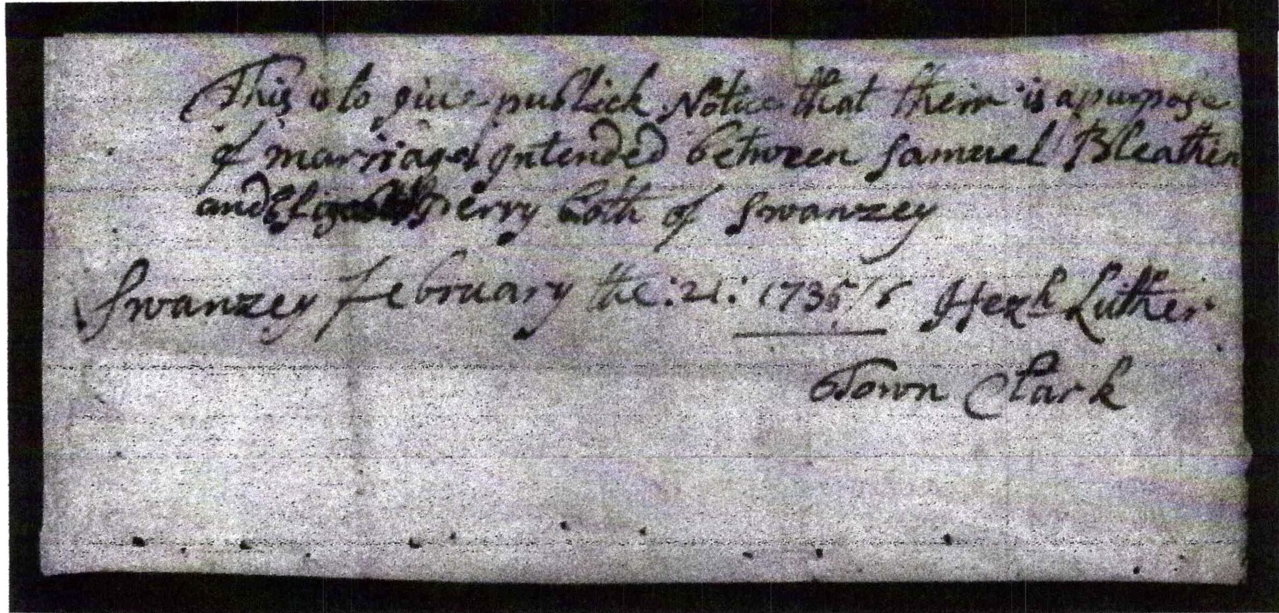 This is to give publick Notice that their is a purpose
of marriage Intended between Samuel Bleathen
and Perry both of Swanzey
Swanzey february the :21: 1735/6 Hezh Luther
Town Clark